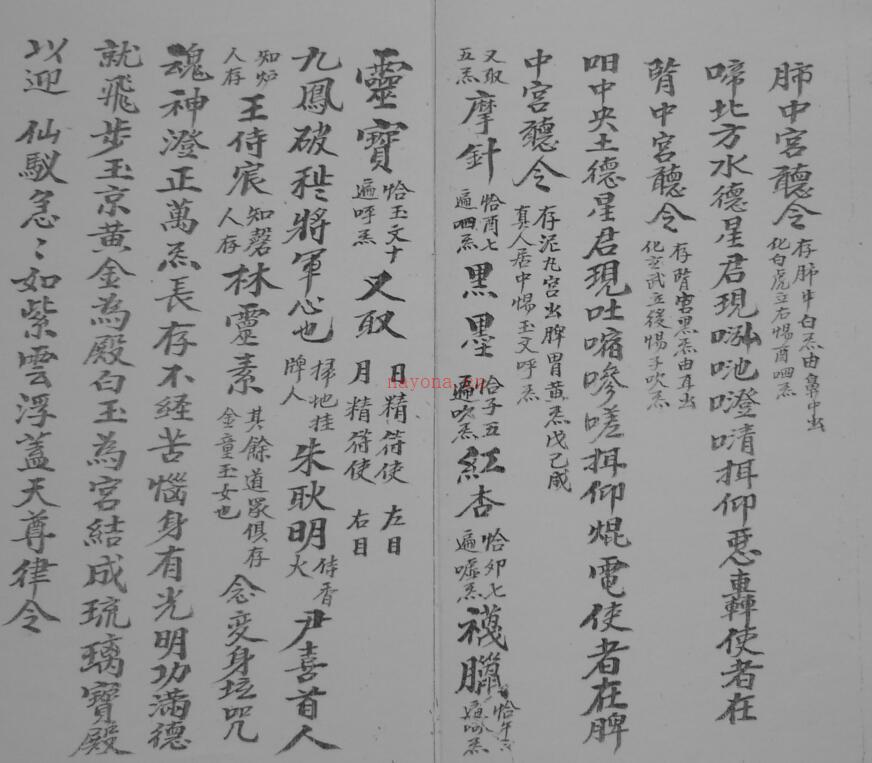 肺中宮聽令 存肺中白炁由鼻中出化白虎立右惕酉呬炁
啼北方水德星君現 㖿唯 㨋仰惡轟使者在
腎中宮聽令 存腎宮黑炁由耳出化玄武立後惕子吹炁
呬中央土德星君現吐嘀嘇嗟揖仰焜電使者在脾
中宮聽令 存泥九宮出脾胃黃炁戊己咸真人居中惕玉文呼炁
又取五炁 摩針 恰酉七遍呬炁 黑墨 恰子五遍吹炁 紅杏 恰卯七遍噓炁 襪臘 恰午 遍呵炁
靈寶 恰玉文十遍呼炁 又取 日精符使左目 月精符使右目
九鳳破穢將軍心也 掃地挂牌人 朱耿明 侍香火 尹喜首人
知炉人存 王侍宸 知磬人存 林靈素 其餘道眾俱存金童玉女也 念变身坛咒
魂神澄正萬炁長存不經苦惱身有光明功滿德
就飛步玉京黃金為殿白玉為宮結成琉璃寶殿
以迎仙馭急〻如紫雲浮蓋天尊律令
nayona.cn